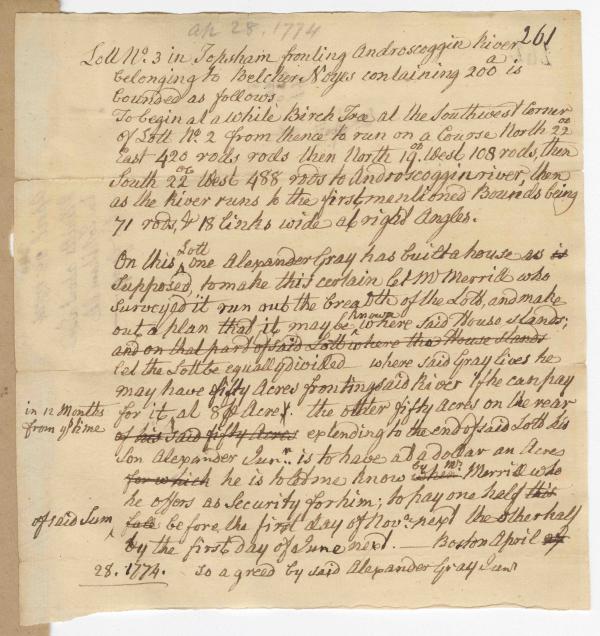 ap 28. 1774
261
Lott No. 3 in Topsham fronting Androscoggin River
belonging to Belcher Noyes containing 200 a is
bounded as follows
To begin at a White Birch Tree at the Southwest Corner
of Lott No. 2 from thence to run on a Course North 22 00
East 420 rods rods then North 19 00 West 108 rods, then
South 22 00 West 488 rods to Androscoggin river, then
as the River runs to the first mentioned Bounds being
71 rods, & 18 links wide at right Angles.
On this Lott one Alexander Gray has built a house as is
Supposed, to make this certain let Mr Merrill who
Surveyed it run out the breadth of the Lott, and make
out a plan that it may be known where said House stands;
and on that part of said Lott where the House Stands
let the Lott be equally divided where said Gray lives he
may have fifty Acres fronting said River if he can pay
in 12 Months
from ye time
for it at 8 Acre; the other fifty Acres on the rear
of his said fifty Acres extending to the end of said Lott his
Son Alexander Junr. is to have at a dollar an Acre
for which he is to let me know by Mr. Merrill who
he offers as Security for him; to pay one half this
of said Sum
before the first day of Novr. next the other half
by the first day of June next. Boston April 27
28. 1774. So agreed by said Alexander Gray Junr